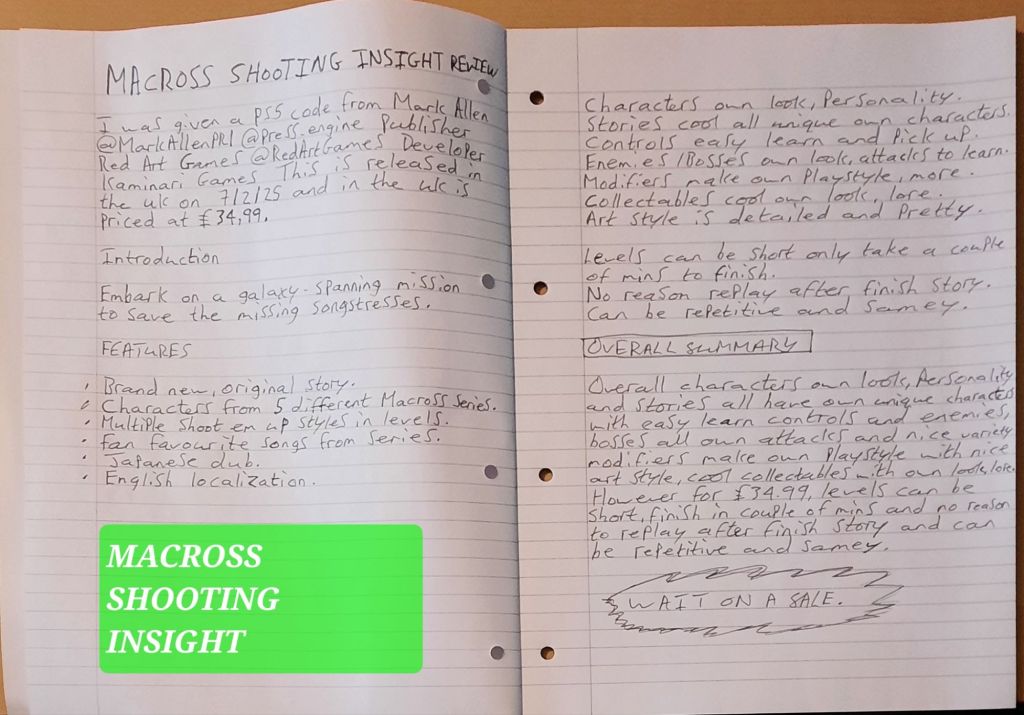 MACROSS SHOOTING INSIGHT REVIEW
I was given a PS5 code from Mark Allen
@MarkAllenPR1 @Press.engine Publisher
Red Art Games @RedArtGames Developer
Kaminari Games This is released in
the uk on 7/2/25 and in the uk is
Priced at £34,99.
Introduction
Embark on a galaxy-spanning mission
to save the missing songstresses.
FEATURES
Brand new, original story.
Characters from 5 different Macross series.
Multiple shoot em up styles in levels.
fan favourite songs from series.
Japanese dub.
English localization.
MACROSS
SHOOTING
INSIGHT
Characters own look, Personality.
Stories cool all unique own characters.
Controls easy learn and Pick up.
Enemies/Bosses own look, attacks to learn.
Modifiers make own Playstyle, more.
Collectables cool own look, lore.
Art style is detailed and Pretty.
Levels can be short only take a couple
of mins to finish.
No reason replay after finish story.
Can be repetitive and samey.
OVERALL SUMMARY
Overall characters own looks, Personality
and stories all have own unique characters
with easy learn controls and enemies,
bosses all own attacks and nice variety
modifiers make own Playstyle with nice
art style, cool collectables with own look, lore.
However for £34.99, levels can be
short, finish in couple of mins and no reason
to replay after finish story and can
be repetitive and samey.
WAIT ON A SALE.